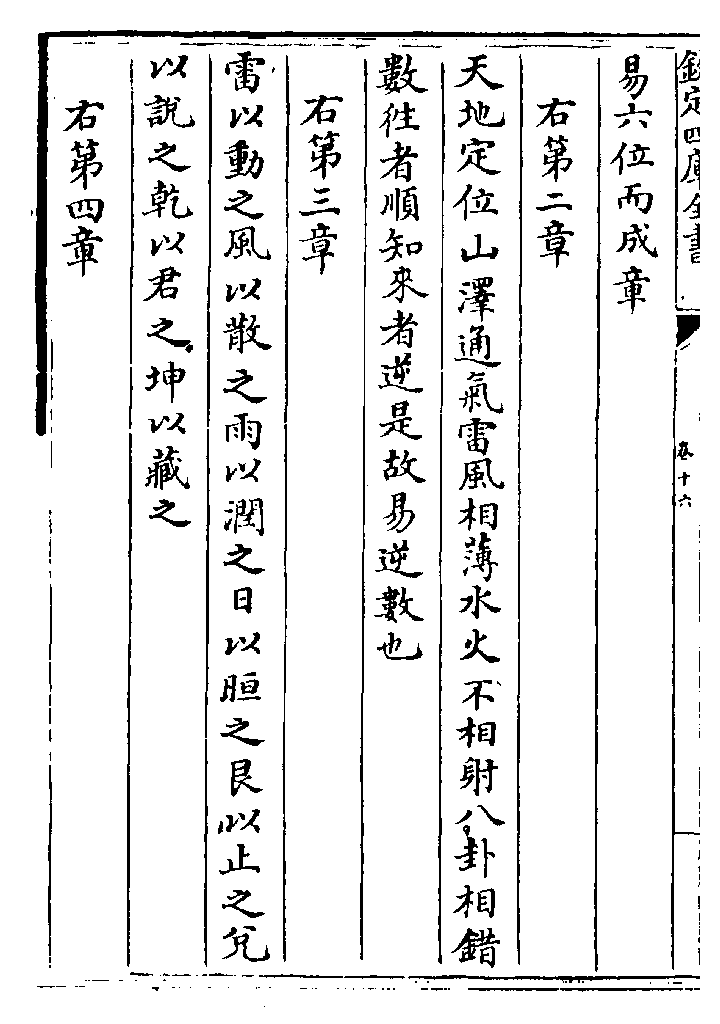 欽定四庫全書
卷十六
易六位而成章
右第二章
天地定位山澤通氣雷風相薄水火不相射八卦相錯
數往者順知來者逆是故易逆數也
右第三章
雷以動之風以散之雨以潤之日以晅之艮以止之兌
以說之乾以君之坤以藏之
右第四章